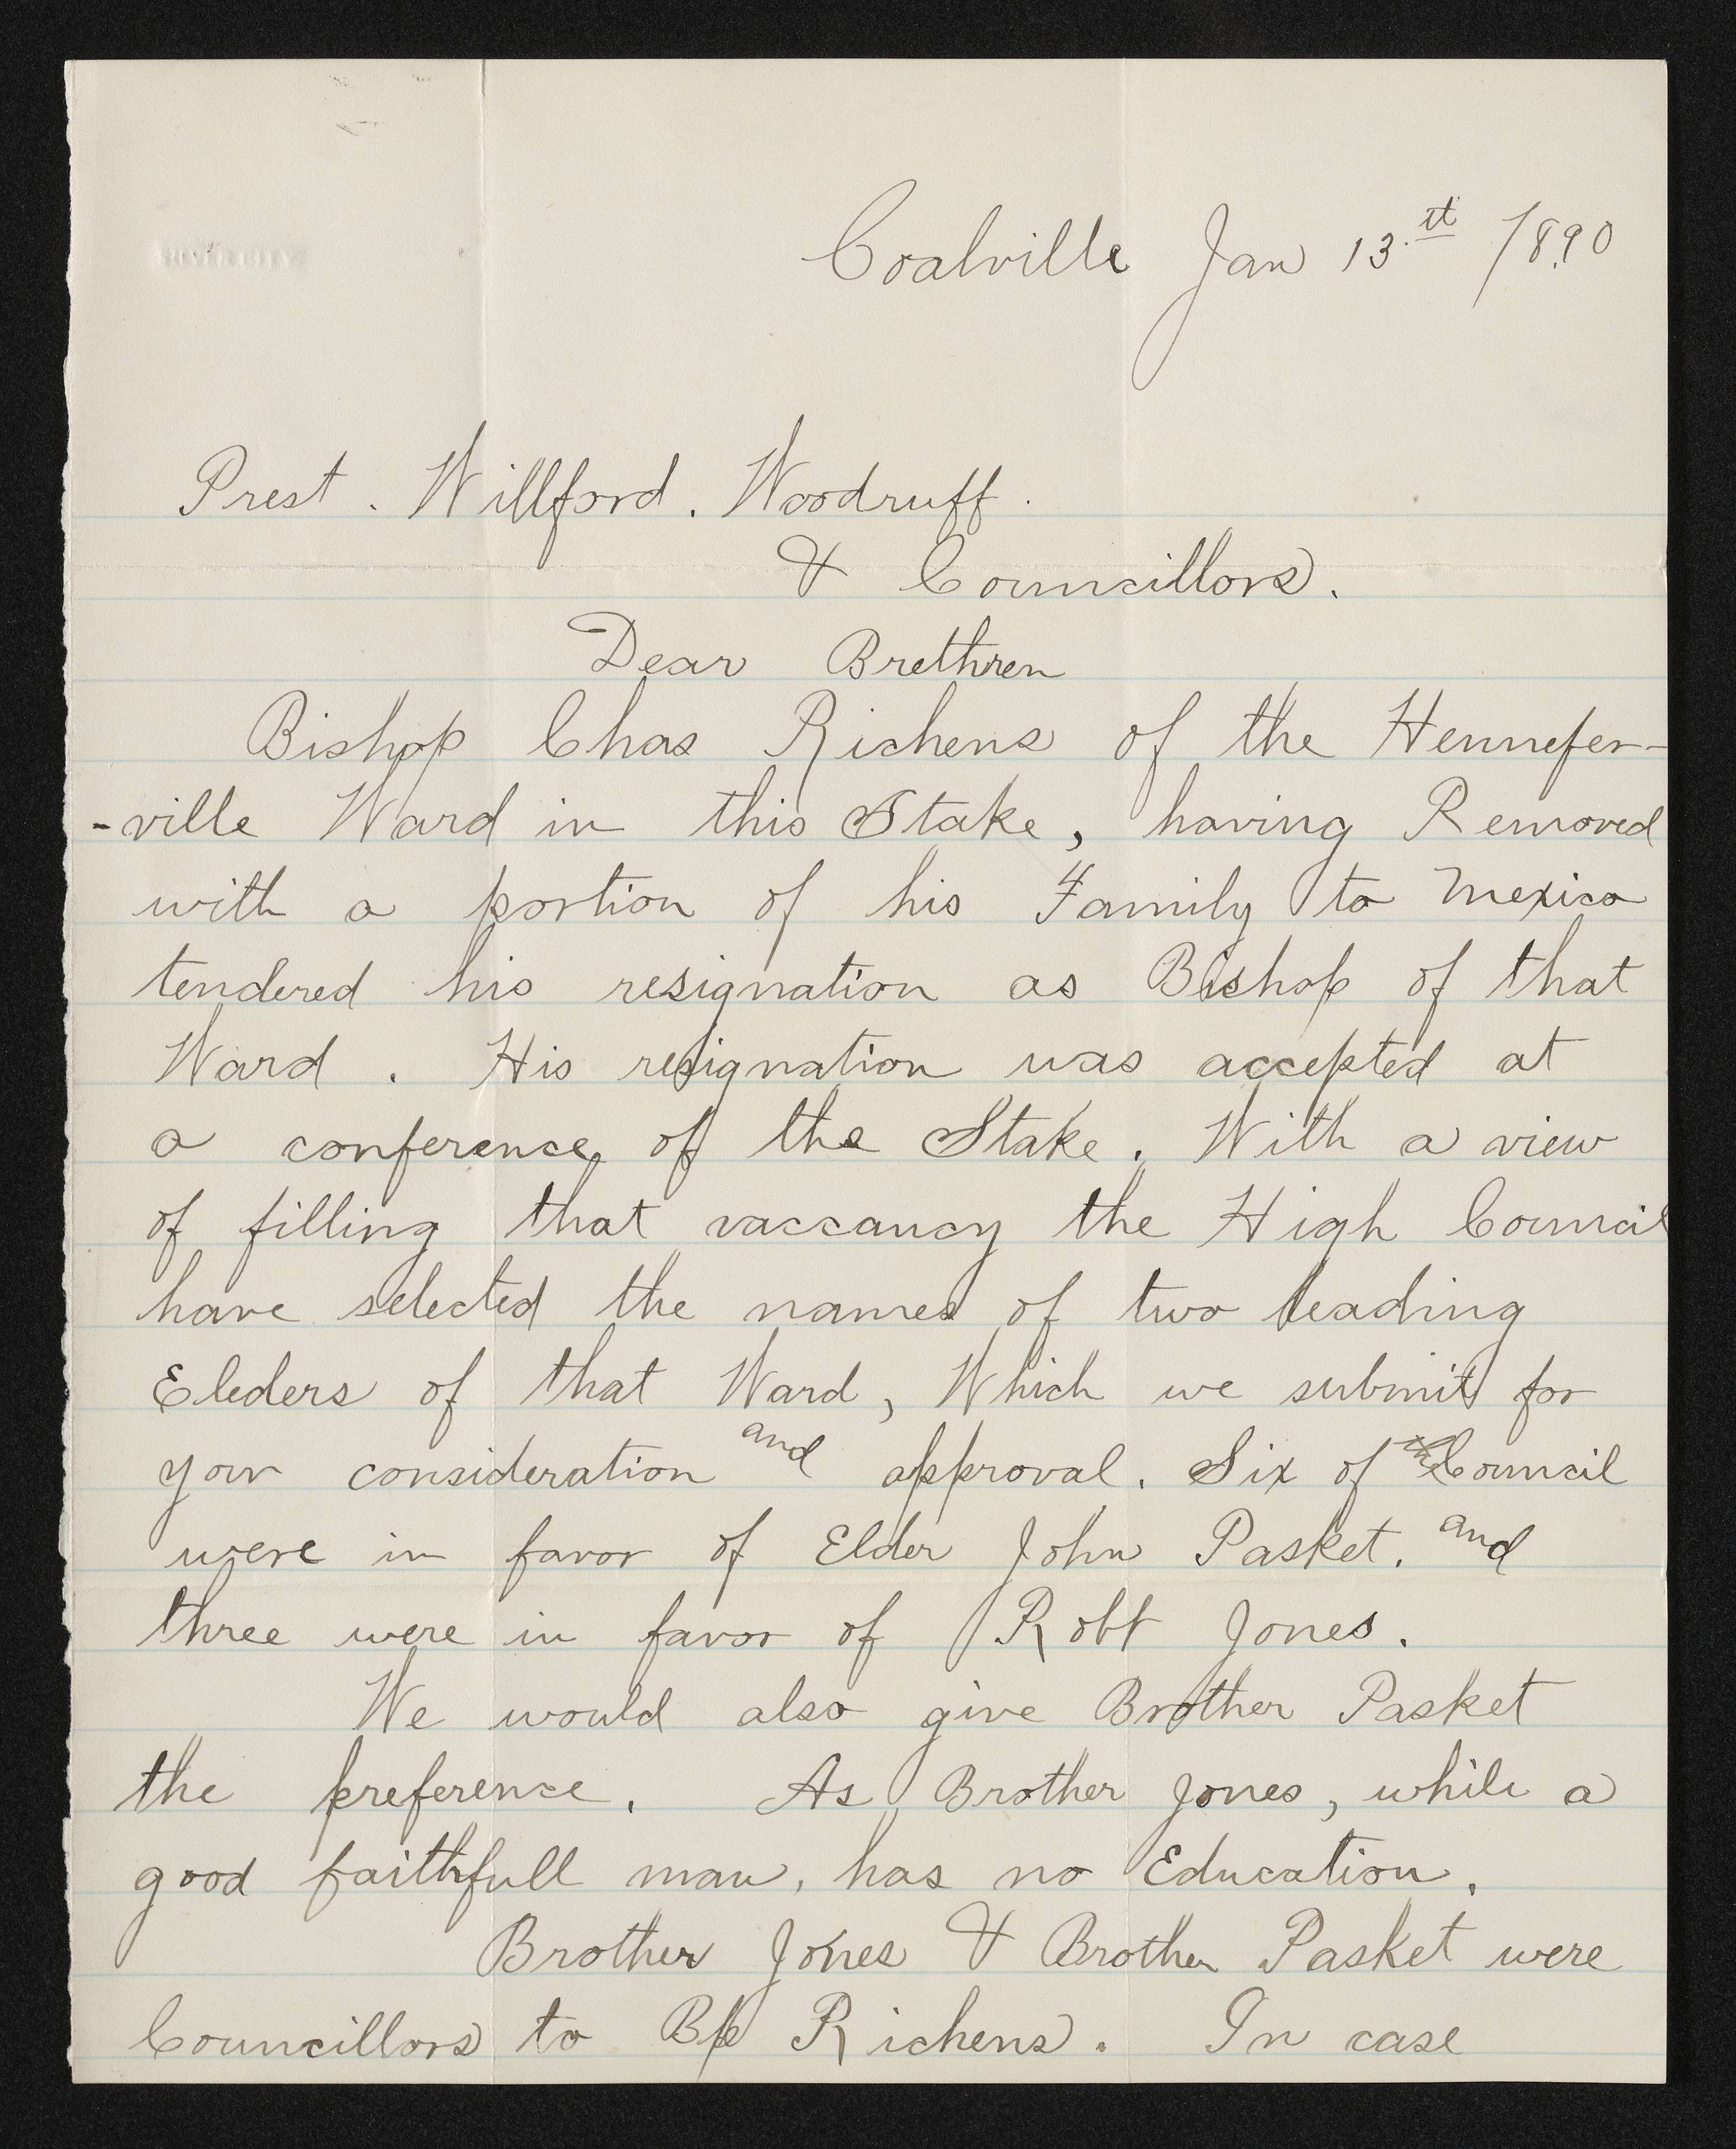 Coalville Jan 13.st 1890
Prest. Willford. Woodruff.
& Councillors.
Dear Brethren
Bishop Chas Richens of the Hennefer-
-ville Ward in this Stake, having Removed
with a portion of his Family to Mexico
tendered his resignation as Bishop of that
Ward. His resignation was accepted at
a conference of the Stake. With a view
of filling that vaccancy the High Council
have selected the names of two leading
Eleders of that Ward, Which we submit for
your consideration and approval. Six of the Council
were in favor of Elder John Pasket. and
three were in favor of Robt Jones.
We would also give Brother Pasket
the preference. As Brother Jones, while a
good faithfull man, has no Education.
Brother Jones & Brother Pasket were
Councillors to Bp Richens. In case